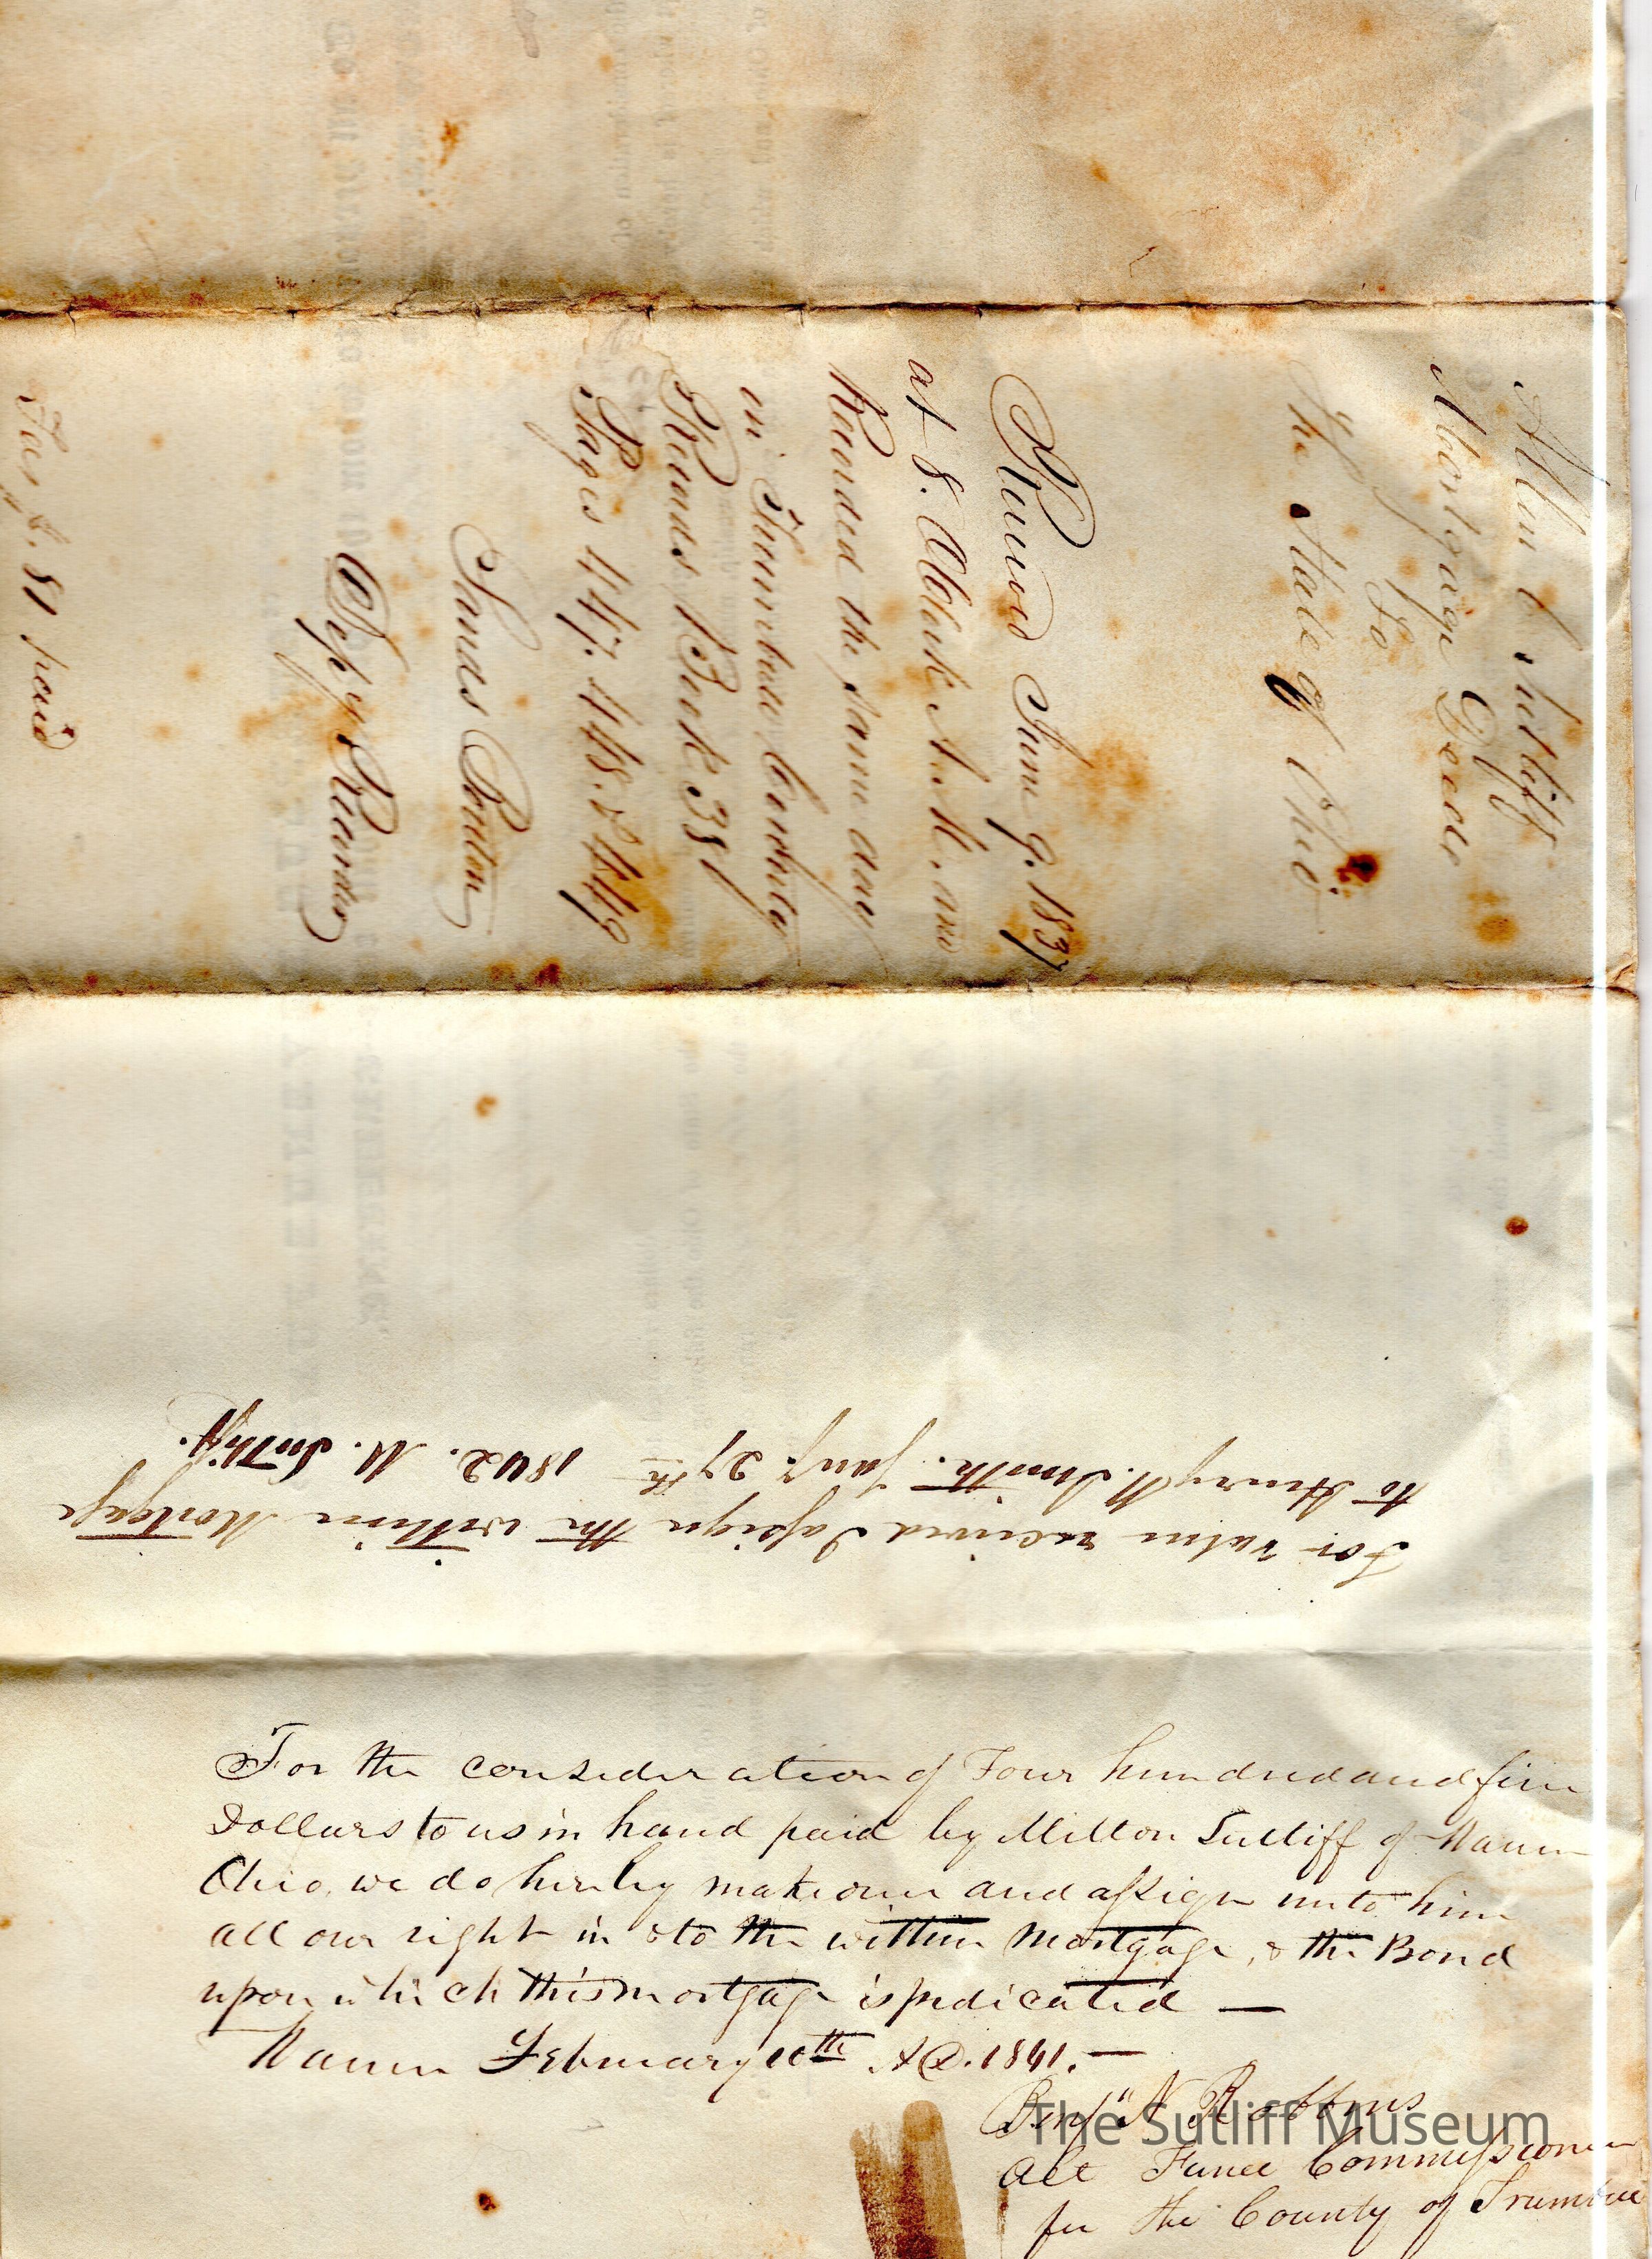 Allen C Sutliff
Mortgage Deed
To
The State of Ohio
Received June 9. 1837
at 8. O'Clock A.M. and
Recorded the same day
in Trumbull County
Records Book 38
Pages 447. 448. & 449
James Benton
Depy Recorder
Fees $. 81 paid
For value received I assign the within Mortgage
to Henry W. Smith. Jany 27th 1842. M. Sutliff.
For the consideration of Four hundred and five
Dollars to us in hand paid by Milton Sutliff of Warren
Ohio, we do hereby make over and assign unto him
all our right in & to the within Mortgage, & the Bond
upon which this mortgage is predicated —
Warren February 10th A.D. 1841. —
Benjn N Robbins
Act Fund Commissioner
for the County of Trumbull
The Sutliff Museum